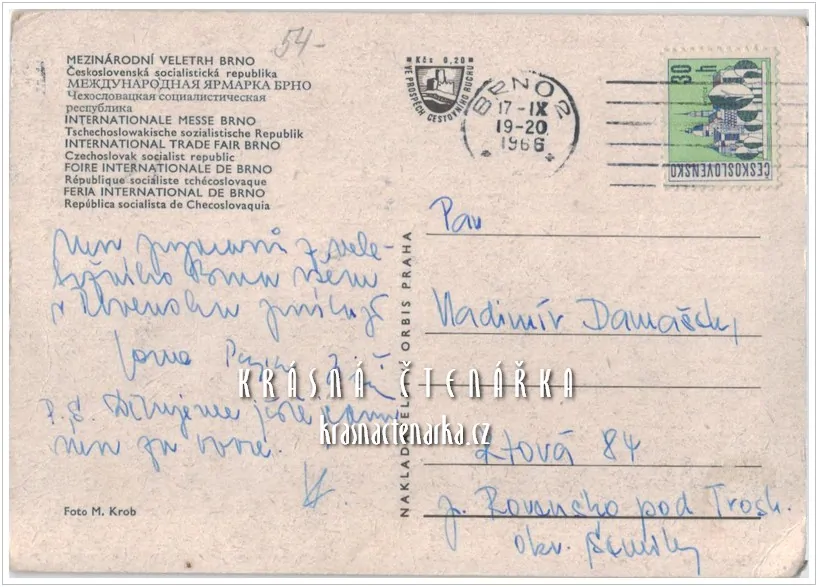 54-
MEZINÁRODNÍ VELETRH BRNO
Československá socialistická republika
МЕЖДУНАРОДНАЯ ЯРМАРКА БРНО
Чехословацкая социалистическая
республика
INTERNATIONALE MESSE BRNO
Tschechoslowakische sozialistische Republik
INTERNATIONAL TRADE FAIR BRNO
Czechoslovak socialist republic
FOIRE INTERNATIONALE DE BRNO
République socialiste tchécoslovaque
FERIA INTERNATIONAL DE BRNO
República socialista de Checoslovaquia
Kčs 0,20
VE PROSPĚCH CESTOVNÍHO RUCHU
BRNO 2
17-IX
19-20
1966
30 h
ČESKOSLOVENSKO
z vele-
tržního Brna všem
v Rovensku
Jana
P.S. Děkujeme ještě
za
Foto M. Krob
NAKLADATELSTVÍ ORBIS PRAHA
Pan
Vladimír Damašek,
Ktová 84
p. Rovensko pod Trosk.
okr. Semily
KRÁSNÁ ČTENÁŘKA
krasnactenarka.cz